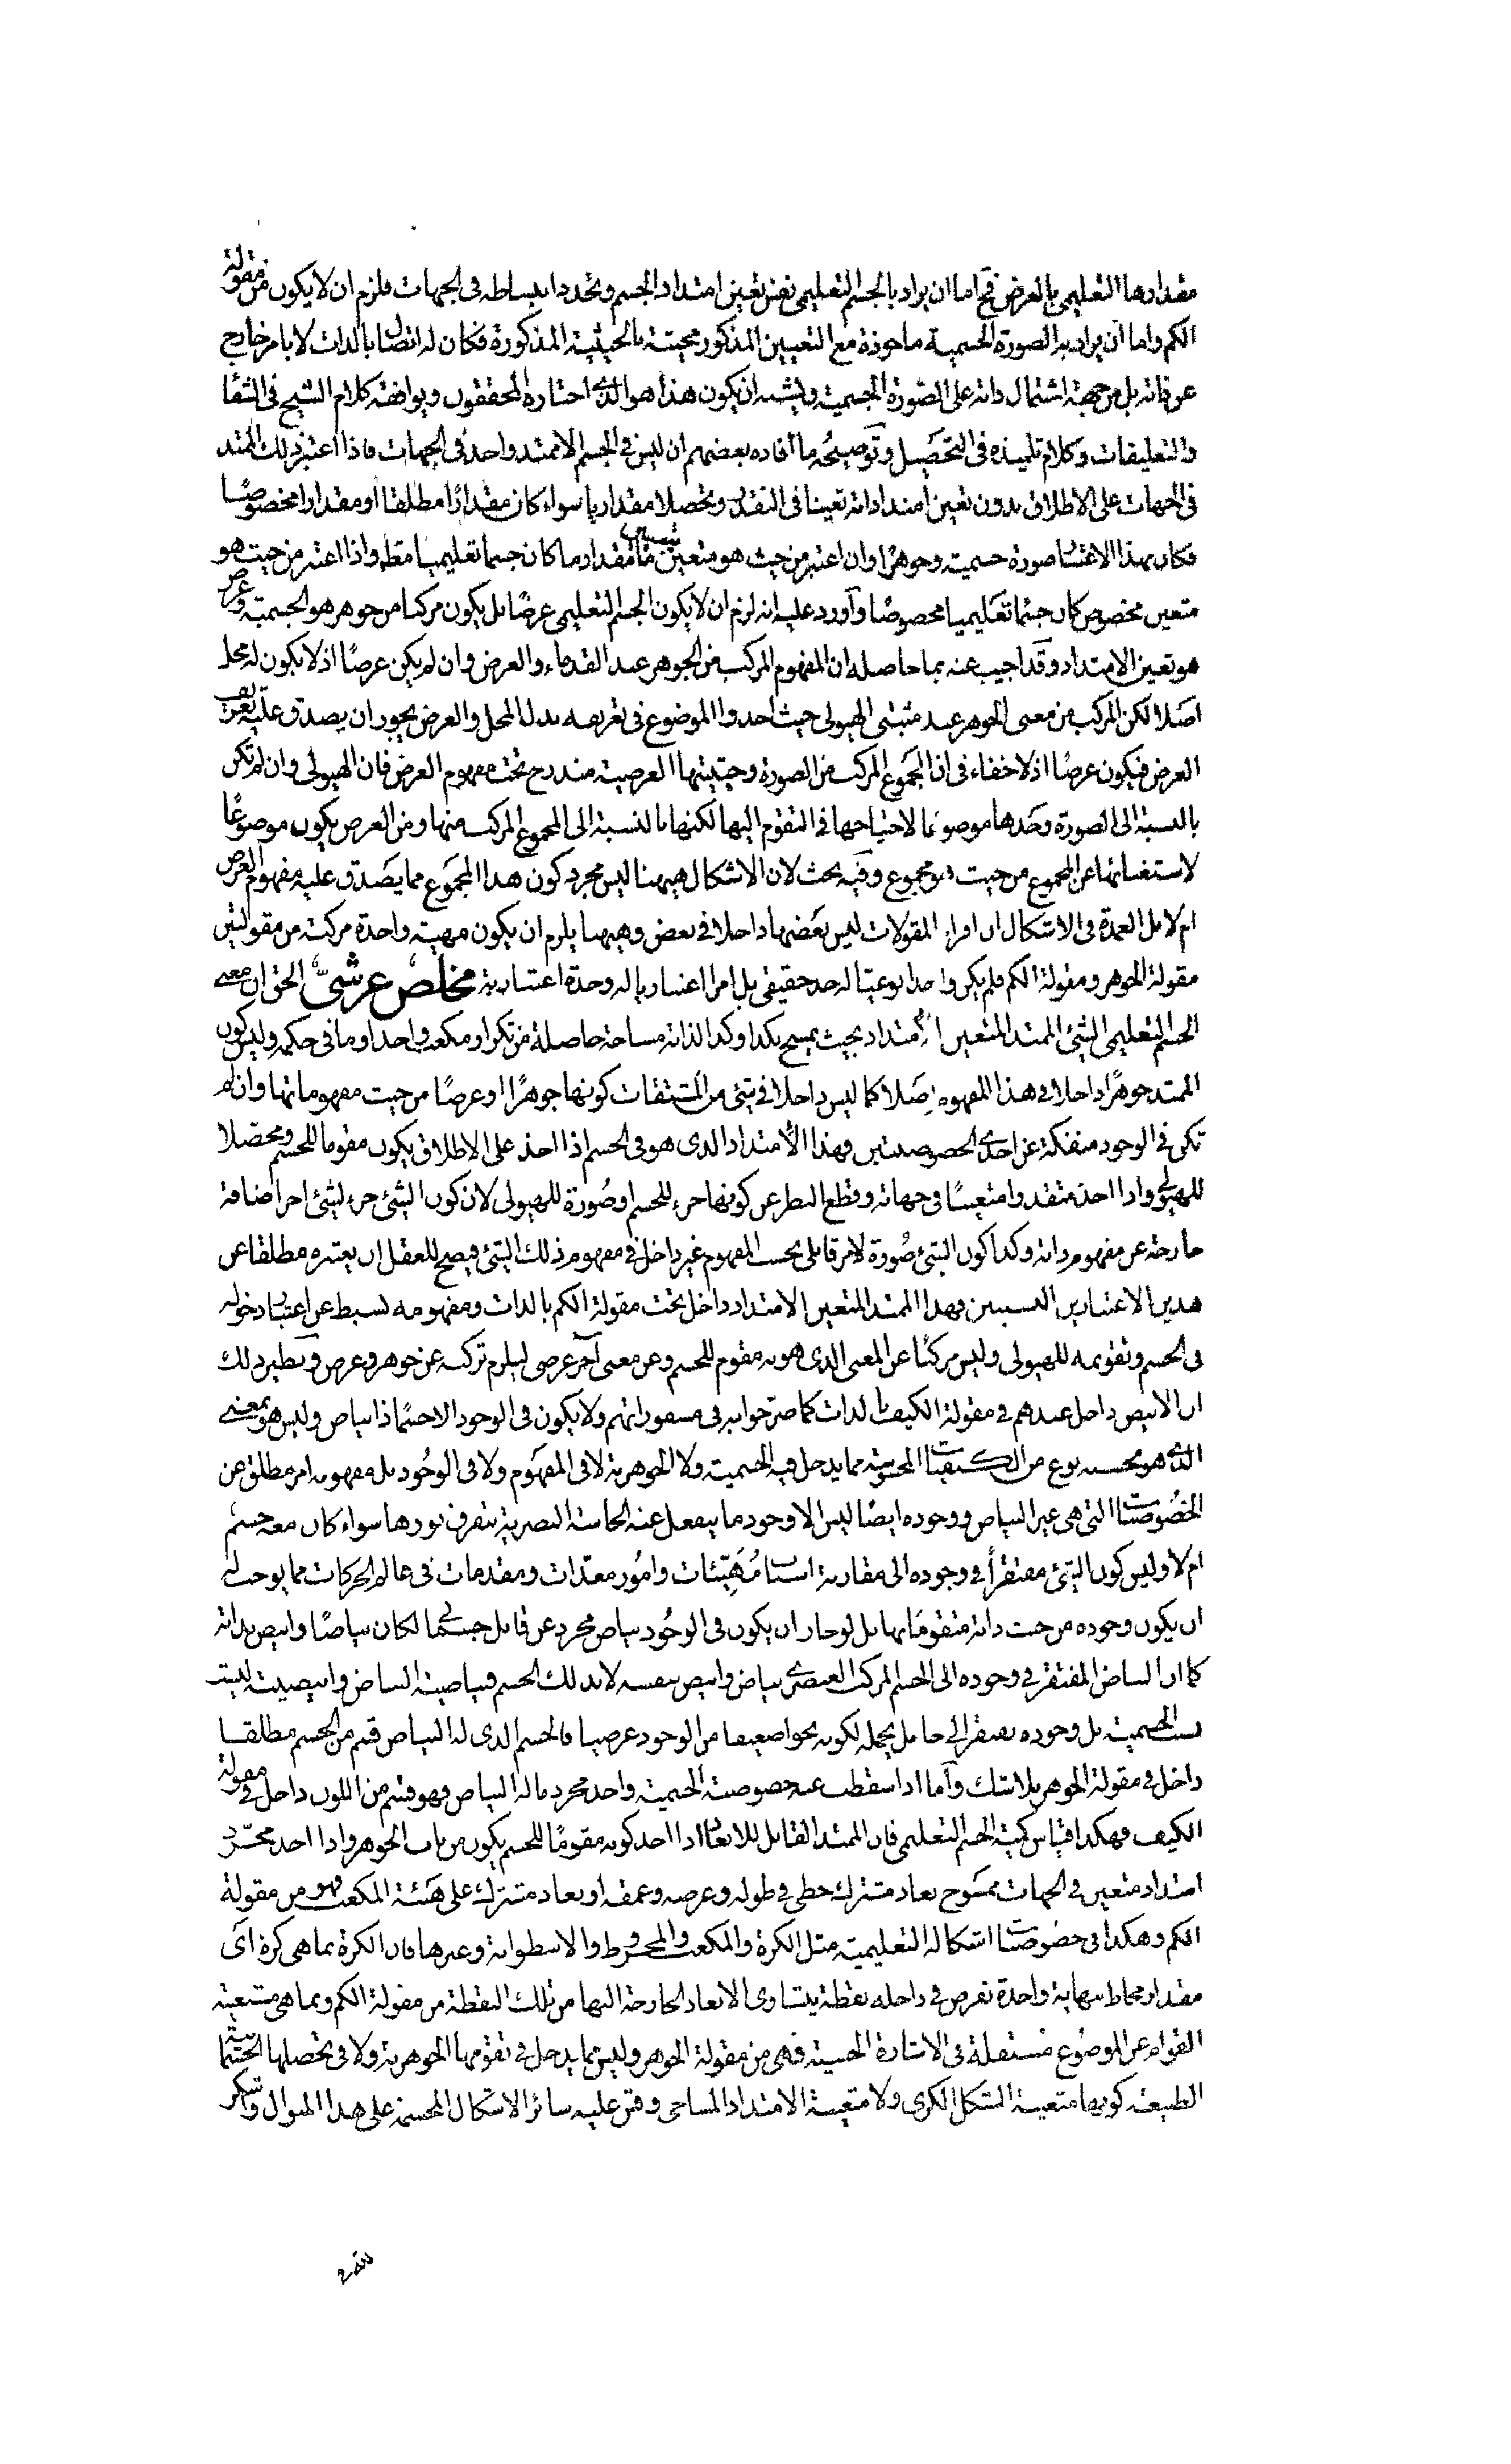 مقدارها التعليمي بالعرض فح اما ان يراد بالجسم التعليمي نفس تعين امتداد الجسم وتحدد انبساطه في الجهات فلزم ان لا يكون من مقولة
الكم واما ان يراد به الصورة الجسمية ماخوذة مع التعيين المذكور محيثة بالحيثية المذكورة فكان له اتصال بالذات لا بامر خارج
عن ذاته بل من جهة اشتمال ذاته على الصورة الجسمية ويشبه ان يكون هذا هو الذي اختاره المحققون ويوافقه كلام الشيخ في الشفا
والتعليقات وكلام تلميذه في التحصيل وتوضيحه ما افاده بعضهم ان ليس في الجسم الا ممتد واحد في الجهات فاذا اعتبر ذلك الممتد
في الجهات على الاطلاق بدون تعين امتداداته تعينا في التقدر وتحصلا مقداريا سواء كان مقدارا مطلقا او مقدارا مخصوصا
فكان بهذا الاعتبار صورة جسمية وجوهرا وان اعتبر من حيث هو متعين بمقدار ما كان جسما تعليميا مطلقا واذا اعتبر من حيث هو
متعين مخصوص كان جسما تعليميا مخصوصا واورد عليه انه لزم ان لا يكون الجسم التعليمي عرضا بل يكون مركبا من جوهر هو الجسمية وعرض
هو تعين الامتداد وقد اجيب عنه بما حاصله ان المفهوم المركب من الجوهر عند القدماء والعرض وان لم يكن عرضا اذ لا يكون له محل
اصلا لكن المركب من معنى الجوهر عند مثبتي الهيولى حيث اخذوا الموضوع في تعريفه بدل المحل والعرض يجوز ان يصدق عليه تعريف
العرض فيكون عرضا اذ لا خفاء في ان المجموع المركب من الصورة وحيثيتها العرضية مندرج تحت مفهوم العرض فان الهيولى وان لم تكن
بالنسبة الى الصورة وحدها موضوعا لاحتياجها في التقوم اليها لكنها بالنسبة الى المجموع المركب منها ومن العرض يكون موضوعا
لاستغنائها عن المجموع من حيث هو مجموع وفيه بحث لان الاشكال ههنا ليس مجرد كون هذا المجموع مما يصدق عليه مفهوم العرض
ام لا بل العمدة في الاشكال ان افراد المقولات ليس بعضها داخلا في بعض وههنا يلزم ان يكون مهية واحدة مركبة من مقولتين
مقولة الجوهر ومقولة الكم فلم يكن واحدا نوعيا له حد حقيقي بل امرا اعتباريا له وحدة اعتبارية مخلص عرشي الحق ان معنى
الجسم التعليمي الشئ الممتد المتعين الامتداد بحيث يمسح بكذا وكذا لذاته مساحة حاصلة من تكرار مكعب واحد او ما في حكمه وليس كون
الممتد جوهرا داخلا في هذا المفهوم اصلا كما ليس داخلا في شئ من المشتقات كونها جوهرا او عرضا من حيث مفهوماتها وان لم
تكن في الوجود منفكة عن احدى الخصوصيتين فهذا الامتداد الذي هو في الجسم اذا اخذ على الاطلاق يكون مقوما للجسم ومحصلا
للهيولى واذا اخذ متقدرا متعينا في جهاته وقطع النظر عن كونها جزء للجسم او صورة للهيولى لان كون الشئ جزء لشئ اخر اضافة
خارجة عن مفهوم ذاته وكذا كون الشئ صورة لامر قابلي بحسب المفهوم غير داخل في مفهوم ذلك الشئ فيصح للعقل ان يعتبره مطلقا عن
هذين الاعتبارين النسبيين فهذا الممتد المتعين الامتداد داخل تحت مقولة الكم بالذات ومفهومه بسيط عن اعتبار دخوله
في الجسم وتقويمه للهيولى وليس مركبا عن المعنى الذي هو به مقوم للجسم وعن معنى آخر عرضي ليلزم تركبه عن جوهر وعرض ونظير ذلك
ان الابيض داخل عندهم في مقولة الكيف بالذات كما صرحوا به في مسفوراتهم ولا يكون في الوجود الا جسما ذا بياض وليس هو بمعنى
الذي هو بحسبه نوع من الكيفيات المحسوسة مما يدخل فيه الجسمية ولا الجوهرية لا في المفهوم ولا في الوجود بل مفهومه امر مطلق عن
الخصوصيات التي هي غير البياض ووجوده ايضا ليس الا وجود ما ينفعل عنه الحاسة البصرية بتفرق نورها سواء كان معه جسم
ام لا وليس كون الشئ مفتقرا في وجوده الى مقارنة اسباب مهيئات وامور معدات ومقدمات في عالم الحركات مما يوجب له
ان يكون وجوده من حيث ذاته متقوما بها بل لو جاز ان يكون في الوجود بياض مجرد عن قابل جسماني لكان بياضا وابيض بذاته
كما ان البياض المفتقر في وجوده الى الجسم المركب العنصري بياض وابيض بنفسه لا بذلك الجسم فبياضية البياض وابيضيته ليست
بسبب الجسمية بل وجوده يفتقر الى حامل يحمله لكونه نحوا ضعيفا من الوجود عرضيا فالجسم الذي له البياض قسم من الجسم مطلقا
داخل في مقولة الجوهر بلا شك واما اذا اسقطت عنه خصوصية الجسمية واخذ مجرد ما له البياض فهو قسم من اللون داخل في مقولة
الكيف فهكذا قياس كمية الجسم التعليمي فان الممتد القابل للابعاد اذا اخذ كونه مقوما للجسم يكون من باب الجوهر واذا اخذ مجرد
امتداد متعين في الجهات ممسوح بعاد مشترك خطي في طوله وعرضه وعمقه او بعاد مشترك على هيئة المكعب فهو من مقولة
الكم وهكذا في خصوصيات اشكاله التعليمية مثل الكرة والمكعب والمخروط والاسطوانة وغيرها فان الكرة بما هي كرة اى
مقدار محاط بنهاية واحدة تفرض في داخله نقطة يتساوى الابعاد الخارجة اليها من تلك النقطة من مقولة الكم وبما هي مستغنية
القوام عن الموضوع مستقلة في الاشارة الحسية فهى من مقولة الجوهر وليس مما يدخل في تقومها الجوهرية ولا في تحصلها الجسمانية
الطبيعية كونها متعينة الشكل الكرى ولا متعينة الامتداد المساحى وقس عليه سائر الاشكال المجسمة على هذا المنوال